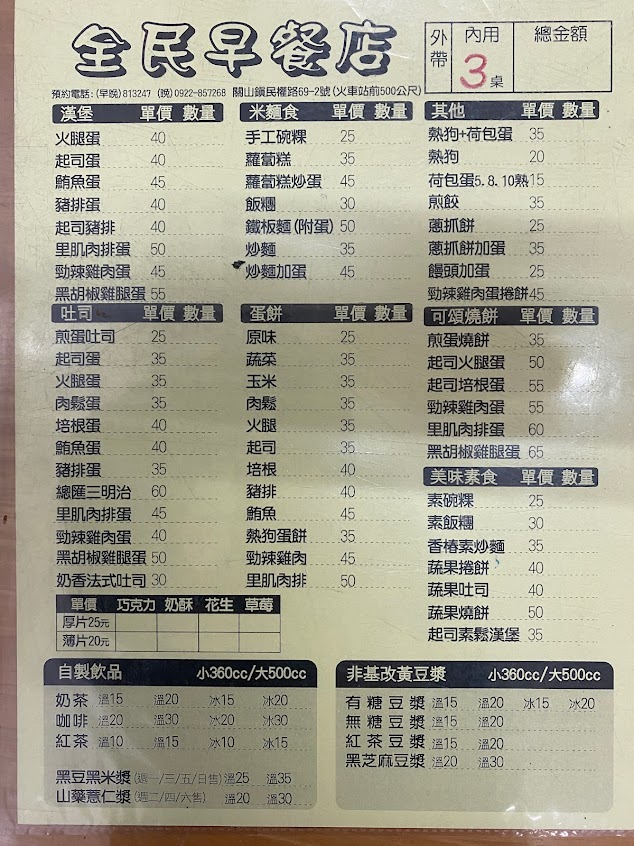 全民早餐店
外帶 內用 總金額
3桌
預約電話:(早晚)813247 (晚)0922-857268 關山鎮民權路69-2號(火車站前500公尺)
漢堡 單價 數量
火腿蛋 40
起司蛋 40
鮪魚蛋 45
豬排蛋 40
起司豬排 40
里肌肉排蛋 50
勁辣雞肉蛋 45
黑胡椒雞腿蛋 55
吐司 單價 數量
煎蛋吐司 25
起司蛋 35
火腿蛋 35
肉鬆蛋 35
培根蛋 40
鮪魚蛋 40
豬排蛋 35
總匯三明治 60
里肌肉排蛋 45
勁辣雞蛋 40
黑胡椒雞腿蛋 50
奶香法式吐司 30
單價 巧克力 奶酥 花生 草莓
厚片25元
薄片20元
米麵食 單價 數量
手工碗粿 25
蘿蔔糕 35
蘿蔔糕炒蛋 45
飯糰 30
鐵板麵(附蛋) 50
炒麵 35
炒麵加蛋 45
蛋餅 單價 數量
原味 25
蔬菜 35
玉米 35
肉鬆 35
火腿 35
起司 35
培根 40
豬排 40
鮪魚 45
熱狗蛋餅 35
勁辣雞肉 45
里肌肉排 50
其他 單價 數量
熱狗+荷包蛋 35
熱狗 20
荷包蛋5.8.10熟15
煎餃 35
蔥抓餅 25
蔥抓餅加蛋 35
饅頭加蛋 25
勁辣雞肉蛋捲餅45
可頌燒餅 單價 數量
煎蛋燒餅 35
起司火腿蛋 50
起司培根蛋 55
勁辣雞肉蛋 55
里肌肉排蛋 60
黑胡椒雞腿蛋 65
美味素食 單價 數量
素碗粿 25
素飯糰 30
香椿素炒麵 35
蔬果捲餅 40
蔬果吐司 40
蔬果燒餅 50
起司素鬆漢堡 35
自製飲品 小360cc/大500cc
奶茶 溫15 溫20 冰15 冰20
咖啡 溫20 溫30 冰20 冰30
紅茶 溫10 溫15 冰10 冰15
黑豆黑米漿(週一/三/五/日售)溫25 溫35
山藥薏仁漿(週二/四/六售) 溫20 溫30
非基改黃豆漿 小360cc/大500cc
有糖豆漿 溫15 溫20 冰15 冰20
無糖豆漿 溫15 溫20
紅茶豆漿 溫15 溫20
黑芝麻豆漿 溫20 溫30